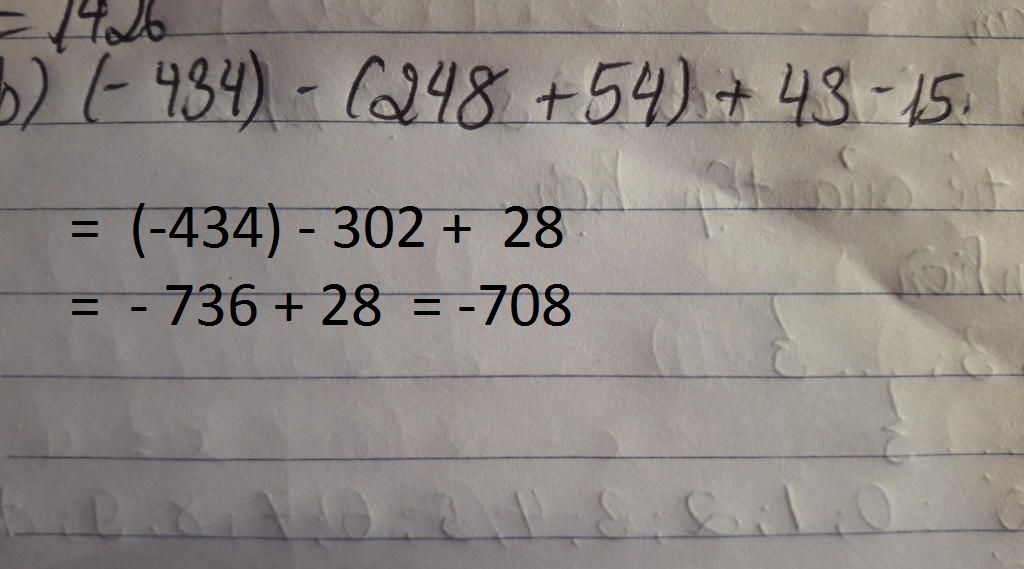 = 1426
b) (- 434) - (248 + 54) + 43 - 15.
= (-434) - 302 + 28
= - 736 + 28 = -708